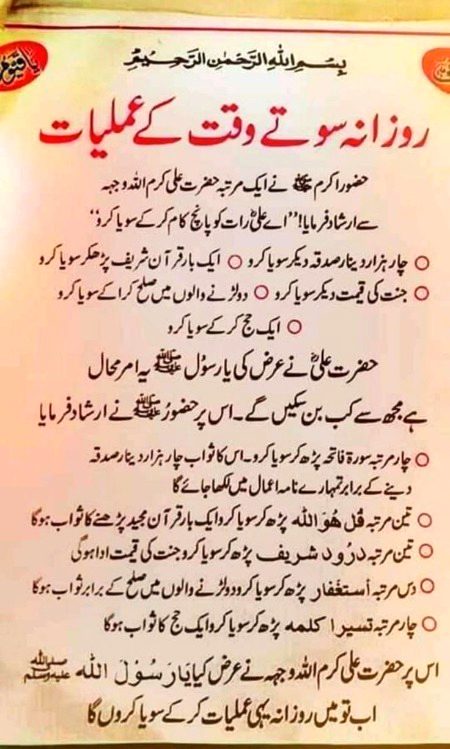 بِسْمِ اللهِ الرَّحْمٰنِ الرَّحِيْمِ
روزانہ سوتے وقت کے عملیات
حضور اکرم ﷺ نے ایک مرتبہ حضرت علی کرم اللہ وجہہ
سے ارشاد فرمایا! "اے علیؓ رات کو پانچ کام کر کے سویا کرو"
○ چار ہزار دینار صدقہ دیکر سویا کرو ○ ایک بار قرآن شریف پڑھکر سویا کرو
○ جنت کی قیمت دیکر سویا کرو ○ دو لڑنے والوں میں صلح کرا کے سویا کرو
○ ایک حج کر کے سویا کرو
حضرت علیؓ نے عرض کی یا رسولؐ ﷺ یہ امر محال
ہے مجھ سے کب بن سکیں گے۔ اس پر حضورؐ ﷺ نے ارشاد فرمایا
○ چار مرتبہ سورۃ فاتحہ پڑھ کر سویا کرو۔ اس کا ثواب چار ہزار دینار صدقہ
دینے کے برابر تمہارے نامہ اعمال میں لکھا جائے گا
○ تین مرتبہ قُل هُوَ اللہ پڑھ کر سویا کرو ایک بار قرآن مجید پڑھنے کا ثواب ہوگا
○ تین مرتبہ درُود شریف پڑھ کر سویا کرو جنت کی قیمت ادا ہوگی
○ دس مرتبہ أستغفار پڑھ کر سویا کرو دو لڑنے والوں میں صلح کے برابر ثواب ہوگا
○ چار مرتبہ تیسرا کلمه پڑھ کر سویا کرو ایک حج کا ثواب ہوگا
اس پر حضرت علی کرم اللہ وجہہ نے عرض کیا یَا رَسُوْلَ اللہ ﷺ
اب تو میں روزانہ یہی عملیات کر کے سویا کروں گا